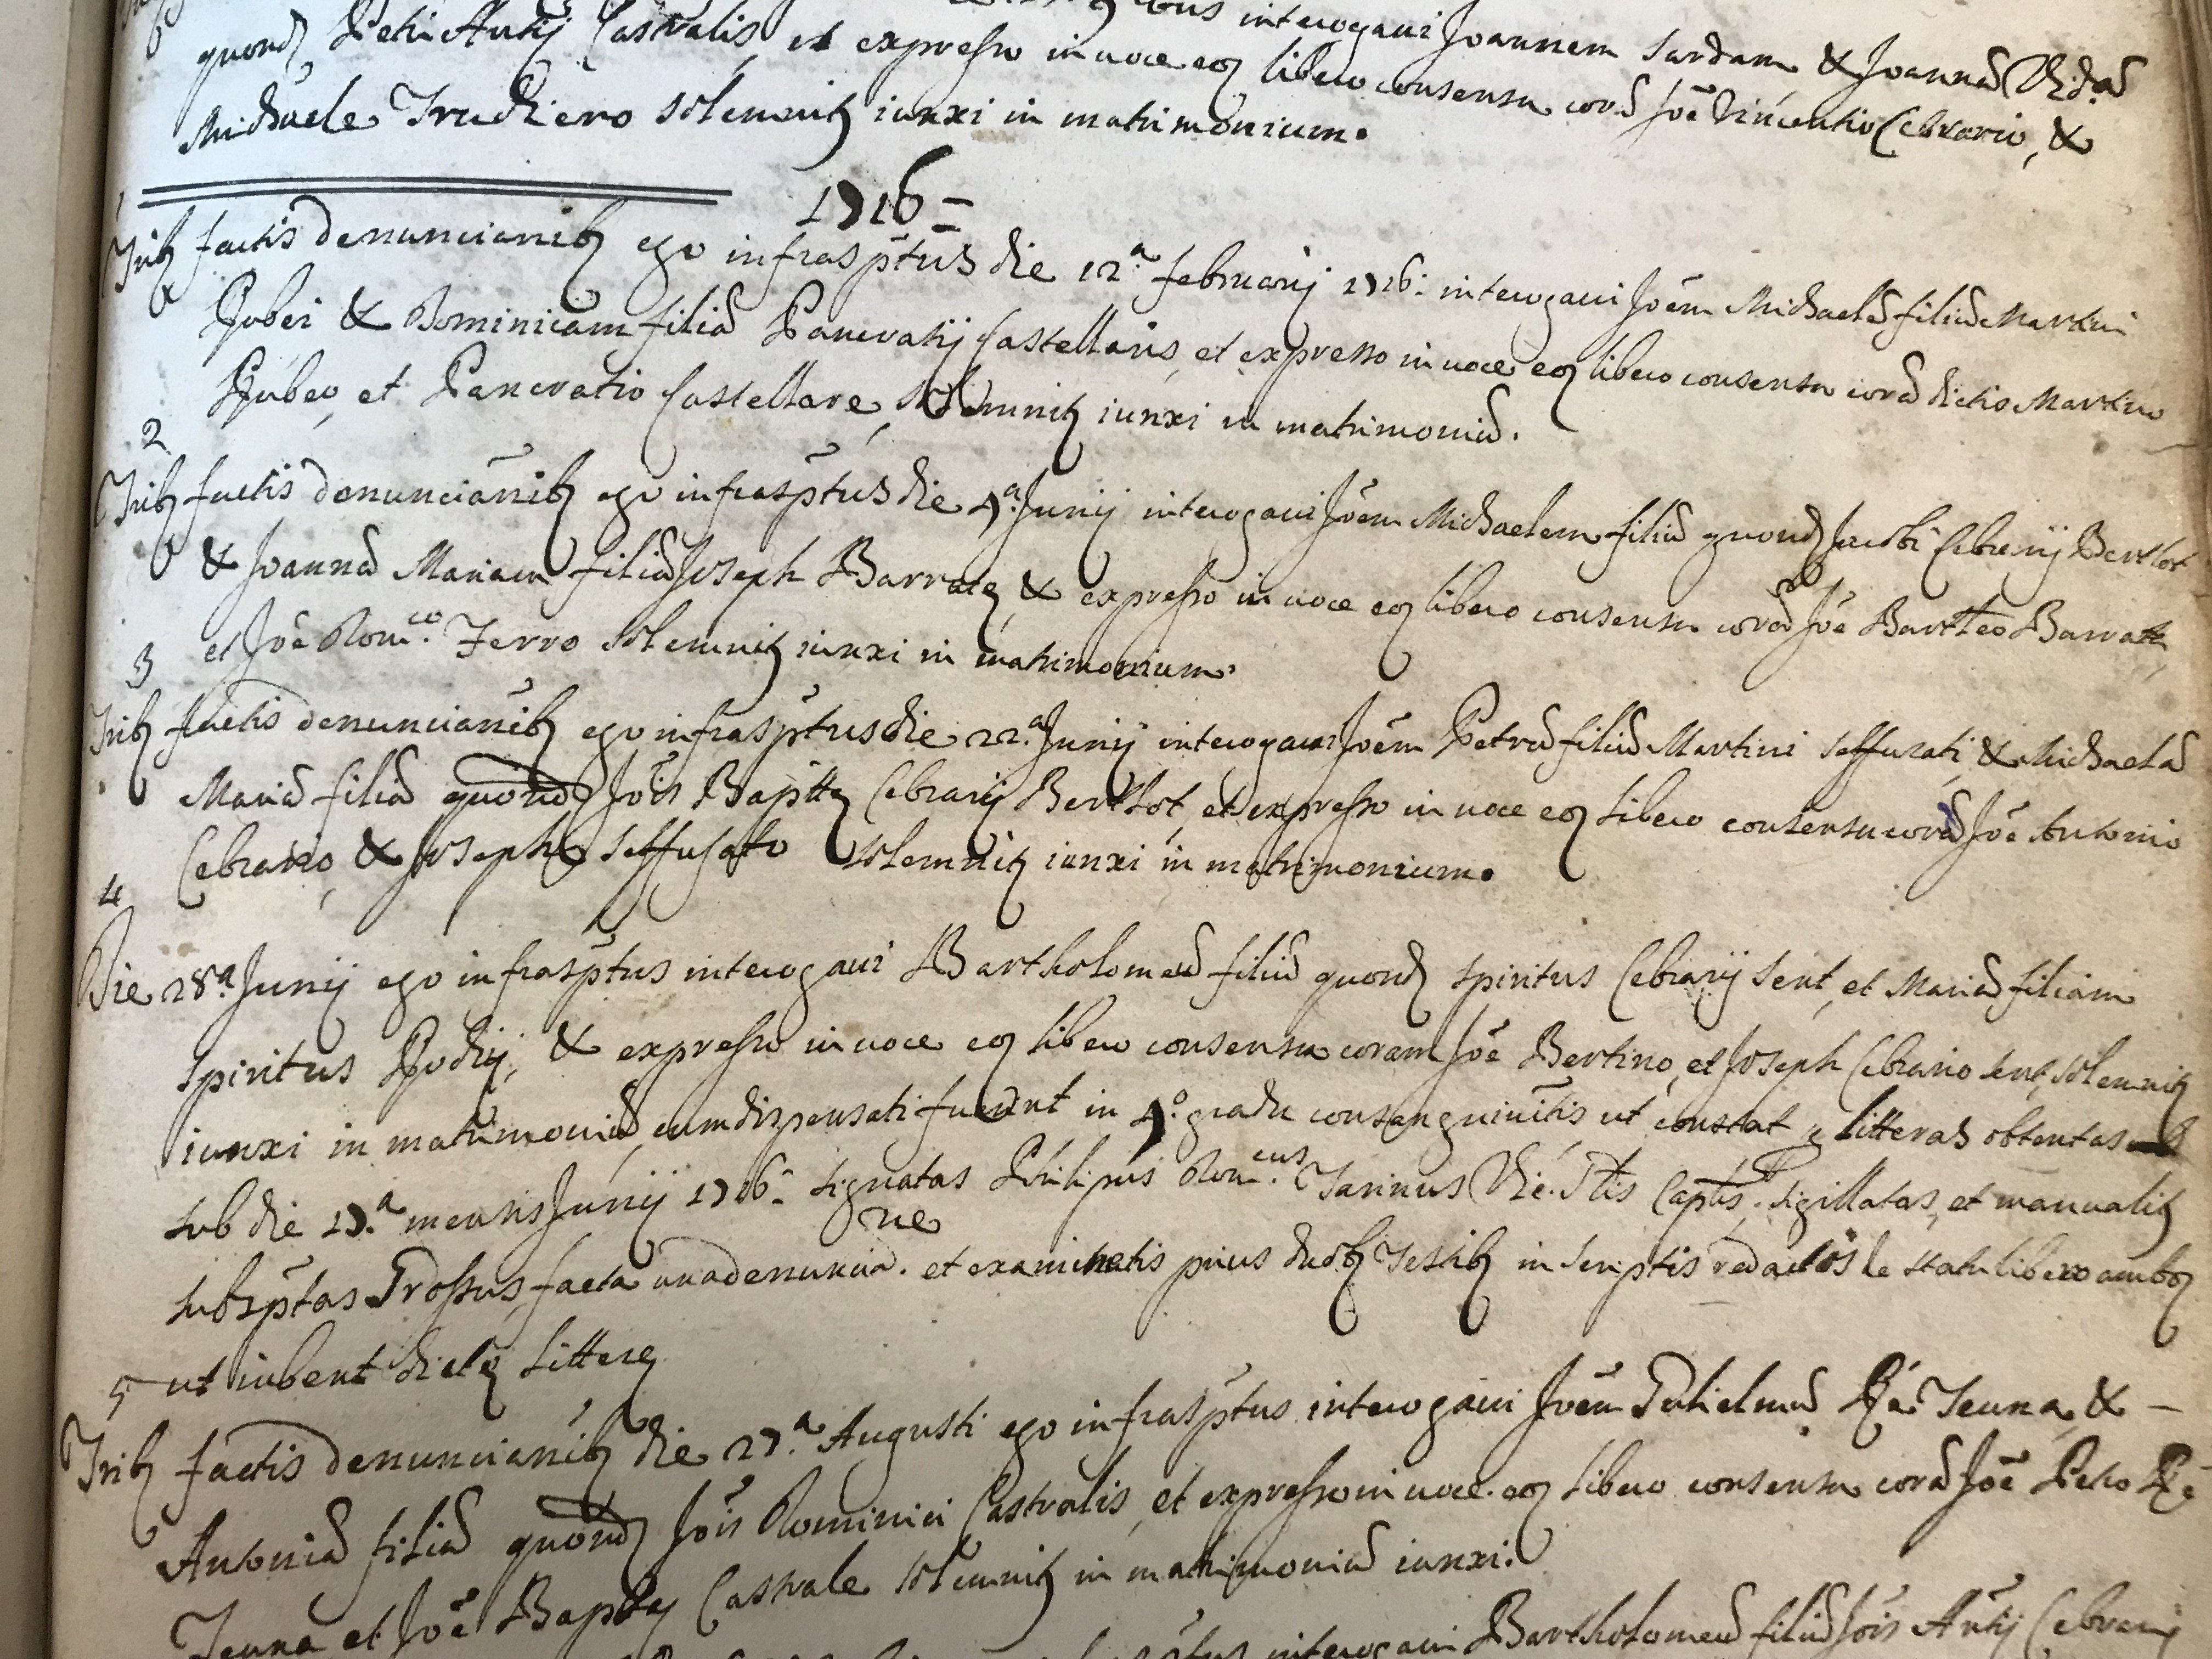 interogavi Joannem Sardam, & Joannã Vidã
quond Petri Antij Castralis, et expresso in voce eoȝ libero consensu corã Joẽ Vincentio Cebrario, &
Michaele Truchiero solemnitȝ iunxi in matrimonium.
1716 =
1
Tribȝ factis denuncianibȝ ego infrasptus die 12.a februarij 1716. interogavi Joẽm Michaelẽ filiũ Martini
Rubei & Dominicam filiã Pancratij Castellaris, et expresso in voce eoȝ libero consensu corã dictis Martino
Rubeo, et Pancratio Castellare, solemnitȝ iunxi in matrimoniũ.
2
Tribȝ factis denuncianibȝ ego infrasptus die 4.a Junij interogavi Joẽm Michaelem filiũ quond Jacobi Cebrarij Berthot
& Joannã Mariam filiã Joseph Barratȩ, & expresso in voce eoȝ libero consensu corã Joẽ Barttẽo Barrate,
et Joẽ Dom.co Ferro solemnitȝ iunxi in matrimonium.
3
Tribȝ factis denuncianibȝ ego infrasptus die 22.a Junij interogavi Joẽm Petrũ filiũ Martini Seffusati, & Michaelã
Mariã filiã quond Jois Bapttȩ Cebrarij Berthot, et expresso in voce eoȝ libero consensu corã Joẽ Antonio
Cebrario, & Josepho Seffusato solemnitȝ iunxi in matrimonium.
4
Die 28.a Junij ego infrasptus interogavi Bartholomeũ filiũ quond Spiritus Cebrarij Sent, et Mariã filiam
Spiritus Rochij, & expresso in voce eoȝ libero consensu coram Joẽ Bertino, et Joseph Cebrario Sent, solemnitȝ
iunxi in matrimoniũ, cum dispensati fuerint in 4.o gradu consanguinitis ut constat ꝑ litteras obtentas
sub die 17.a mensis Junij 1716. signatas Philipus Dom.cus Tarinus Vic. Glis Caplis, sigillatas, et manualitȝ
subsptas Grossus, facta una denuncia.ne et examinatis prius duobȝ Testibȝ in scriptis redactis de statu libero amboȝ
ut iubent dictȩ litterȩ
5
Tribȝ factis denuncianibȝ die 27.a Augusti ego infrasptus interogavi Joẽm Gulielmũ Rẽ Teuna, & –
Antoniã filiã quond Jois Dominici Castralis, et expresso in voce eoȝ libero consensu corã Joẽ Petro Rẽ
Teuna et Joẽ Baptta Castrale solemnitȝ in matrimoniũ iunxi.
interogavi Bartholomeũ filiũ Jois Antij Cebrarij